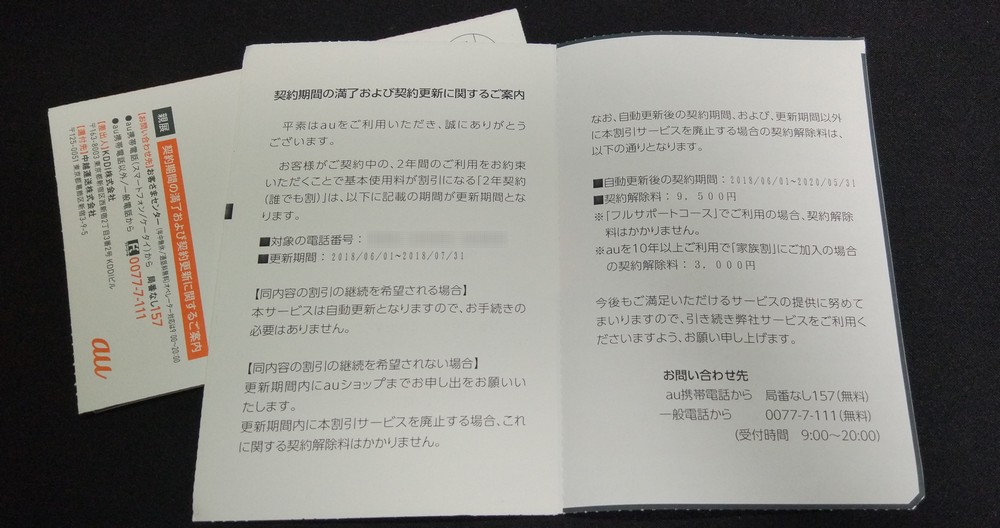 契約期間の満了および契約更新に関するご案内
平素はauをご利用いただき、誠にありがとう
ございます。
お客様がご契約中の、2年間のご利用をお約束
いただくことで基本使用料が割引になる「2年契約
(誰でも割)」は、以下に記載の期間が更新期間とな
ります。
■対象の電話番号:
■更新期間:2018/06/01~2018/07/31
【同内容の割引の継続を希望される場合】
本サービスは自動更新となりますので、お手続きの
必要はありません。
【同内容の割引の継続を希望されない場合】
更新期間内にauショップまでお申し出をお願いい
たします。
更新期間内に本割引サービスを廃止する場合、これ
に関する契約解除料はかかりません。
なお、自動更新後の契約期間、および、更新期間以外
に本割引サービスを廃止する場合の契約解除料は、
以下の通りとなります。
■自動更新後の契約期間:2018/06/01~2020/05/31
■契約解除料:9,500円
※「フルサポートコース」でご利用の場合、契約解除
料はかかりません。
※auを10年以上ご利用で「家族割」にご加入の場合
の契約解除料:3,000円
今後もご満足いただけるサービスの提供に努めて
まいりますので、引き続き弊社サービスをご利用く
ださいますよう、お願い申し上げます。
お問い合わせ先
au携帯電話から 局番なし157(無料)
一般電話から 0077-7-111(無料)
(受付時間 9:00~20:00)
親展 契約期間の満了および契約更新に関するご案内
【お問い合わせ先】お客さまセンター(年中無休/通話料無料)オペレーター対応は9:00~20:00
●au携帯電話(スマートフォン/ケータイ)から 局番なし157
●au携帯電話以外/一般電話から 0077-7-111
【差出人】KDDI株式会社
〒163-8003 東京都新宿区西新宿2丁目3番2号 KDDIビル
【還付先】中越運送株式会社
〒125-0051 東京都葛飾区新宿3-9-5
au